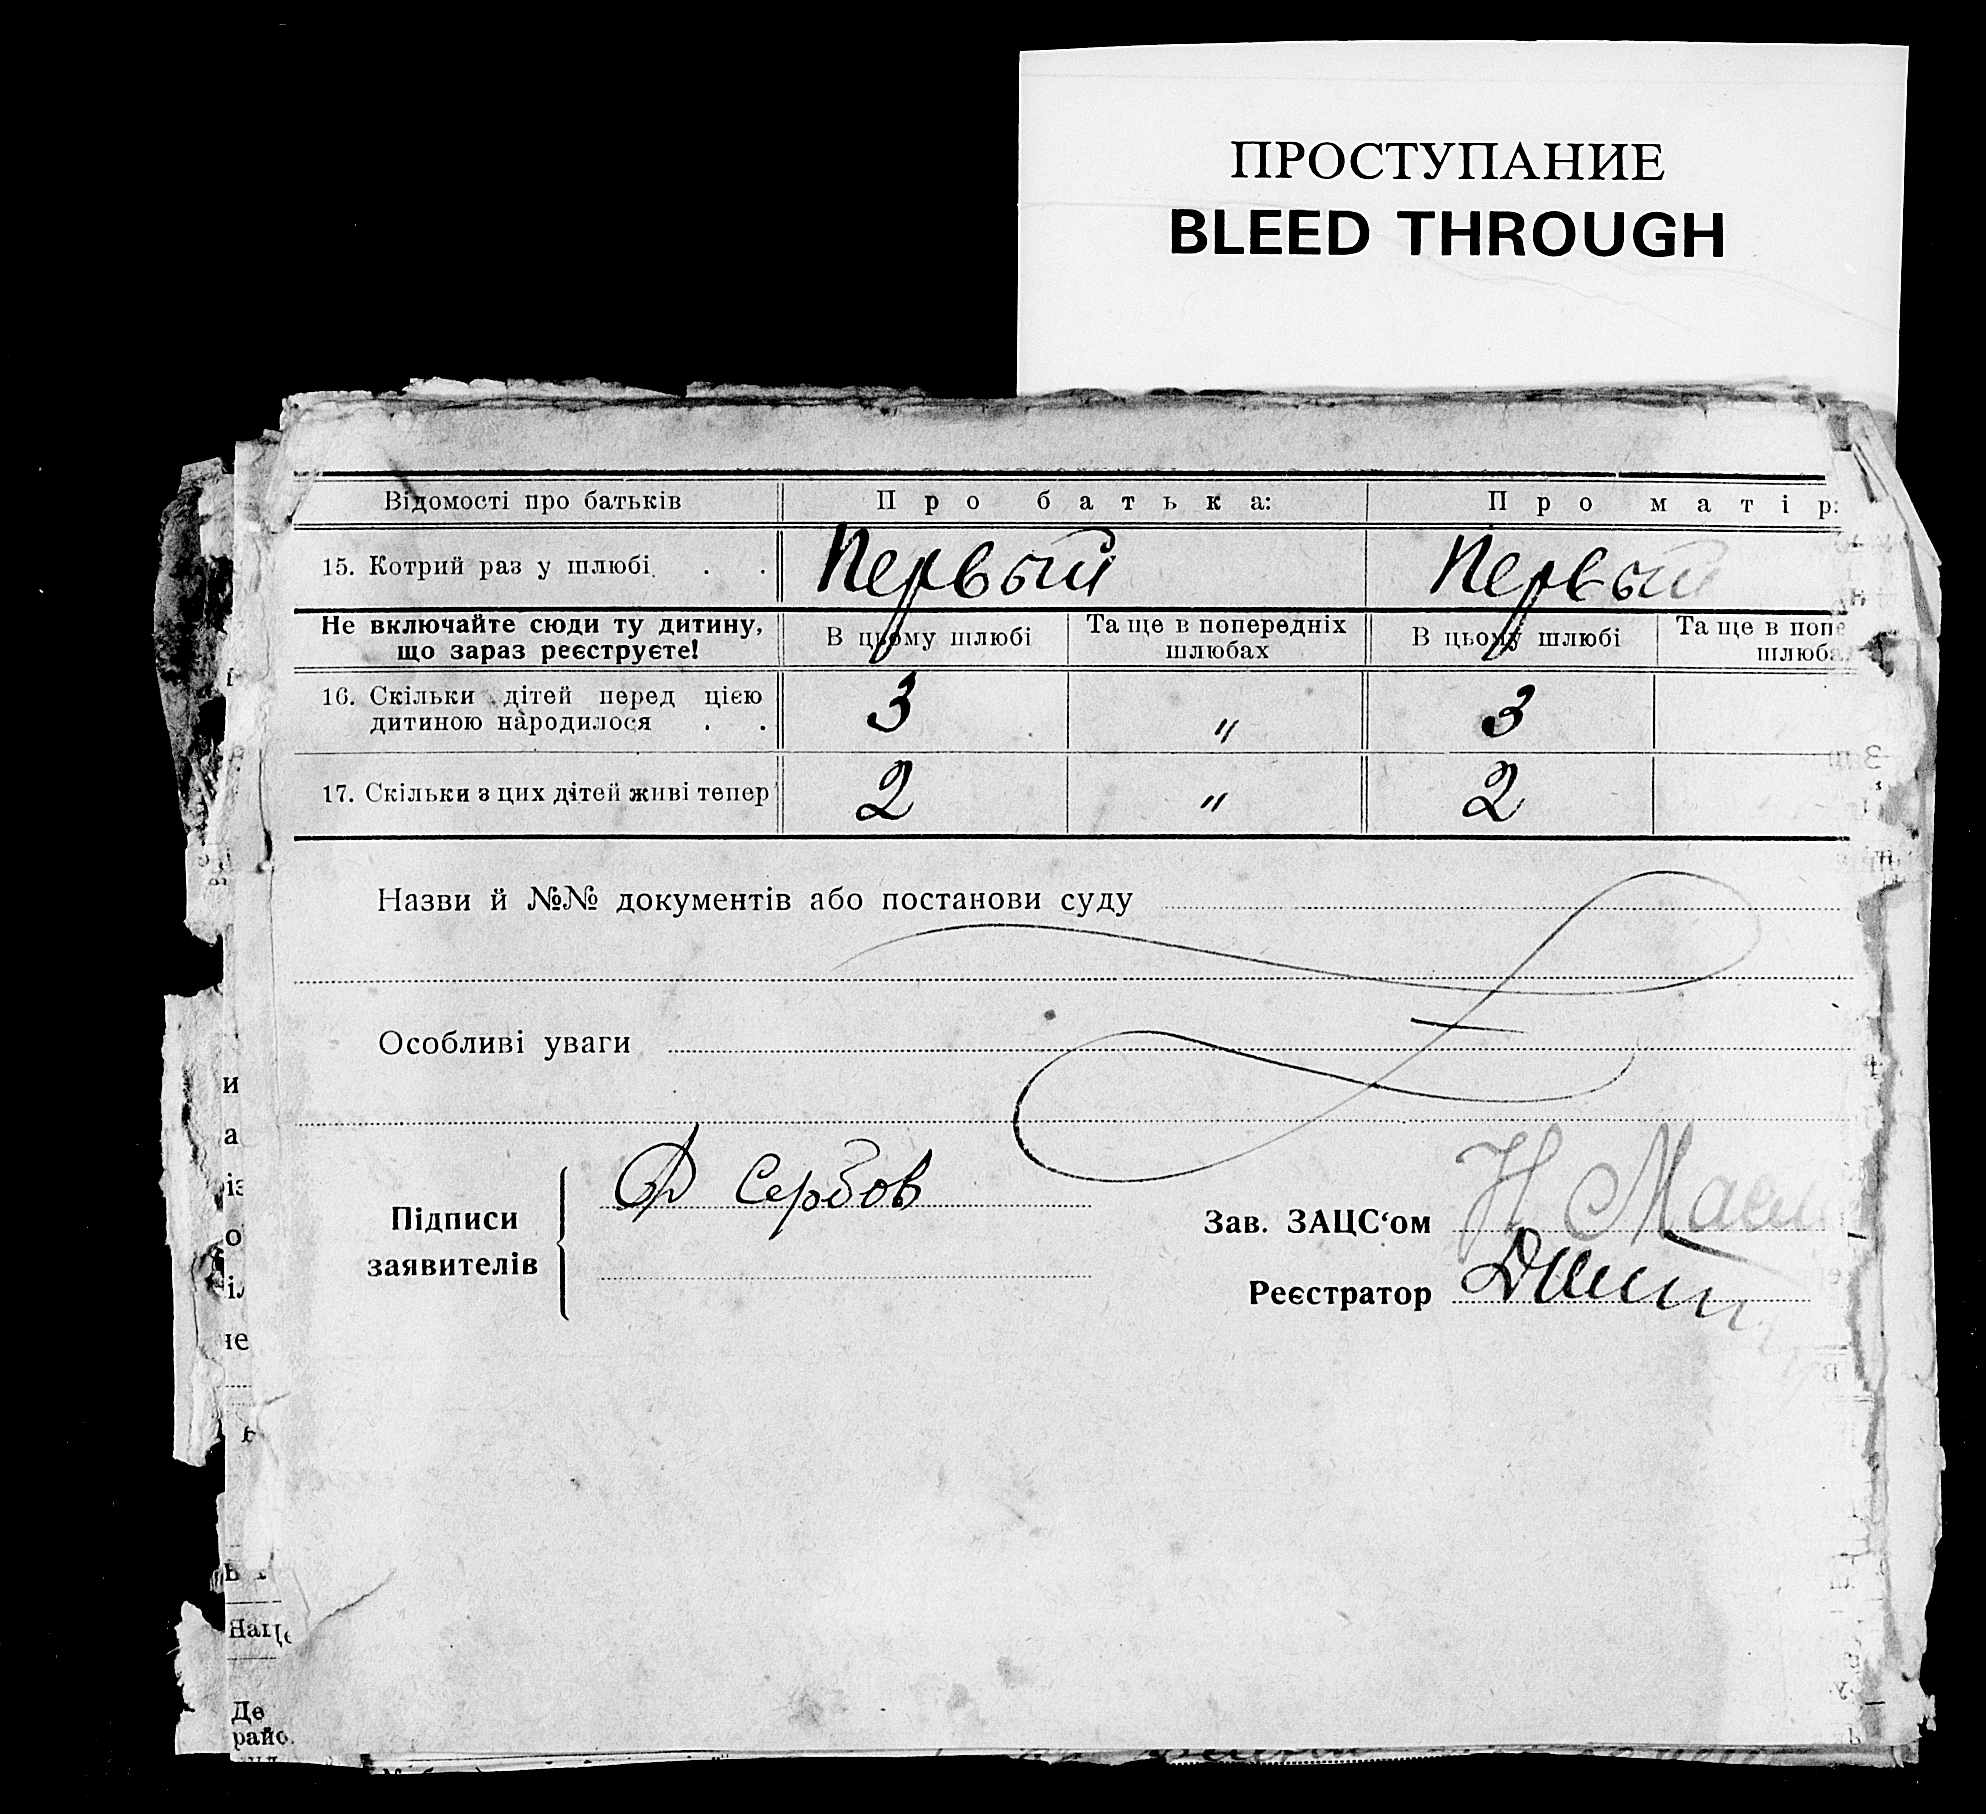 ПРОСТУПАНИЕ
BLEED THROUGH
Відомості про батьків Про батька: Про матір:
15. Котрий раз у шлюбі . . Первый Первый
Не включайте сюди ту дитину, що зараз реєструєте! В цьому шлюбі Та ще в попередніх шлюбах В цьому шлюбі Та ще в попе шлюба
16. Скільки дітей перед цією
дитиною народилося . . 3 〃 3
17. Скільки з цих дітей живі тепер 2 〃 2
Назви й №№ документів або постанови суду
Особливі уваги
Підписи заявителів
Сербов
Зав. ЗАЦС‘ом Н
Реєстратор
и
а
із
о
іл
не
Наце
Де
райо